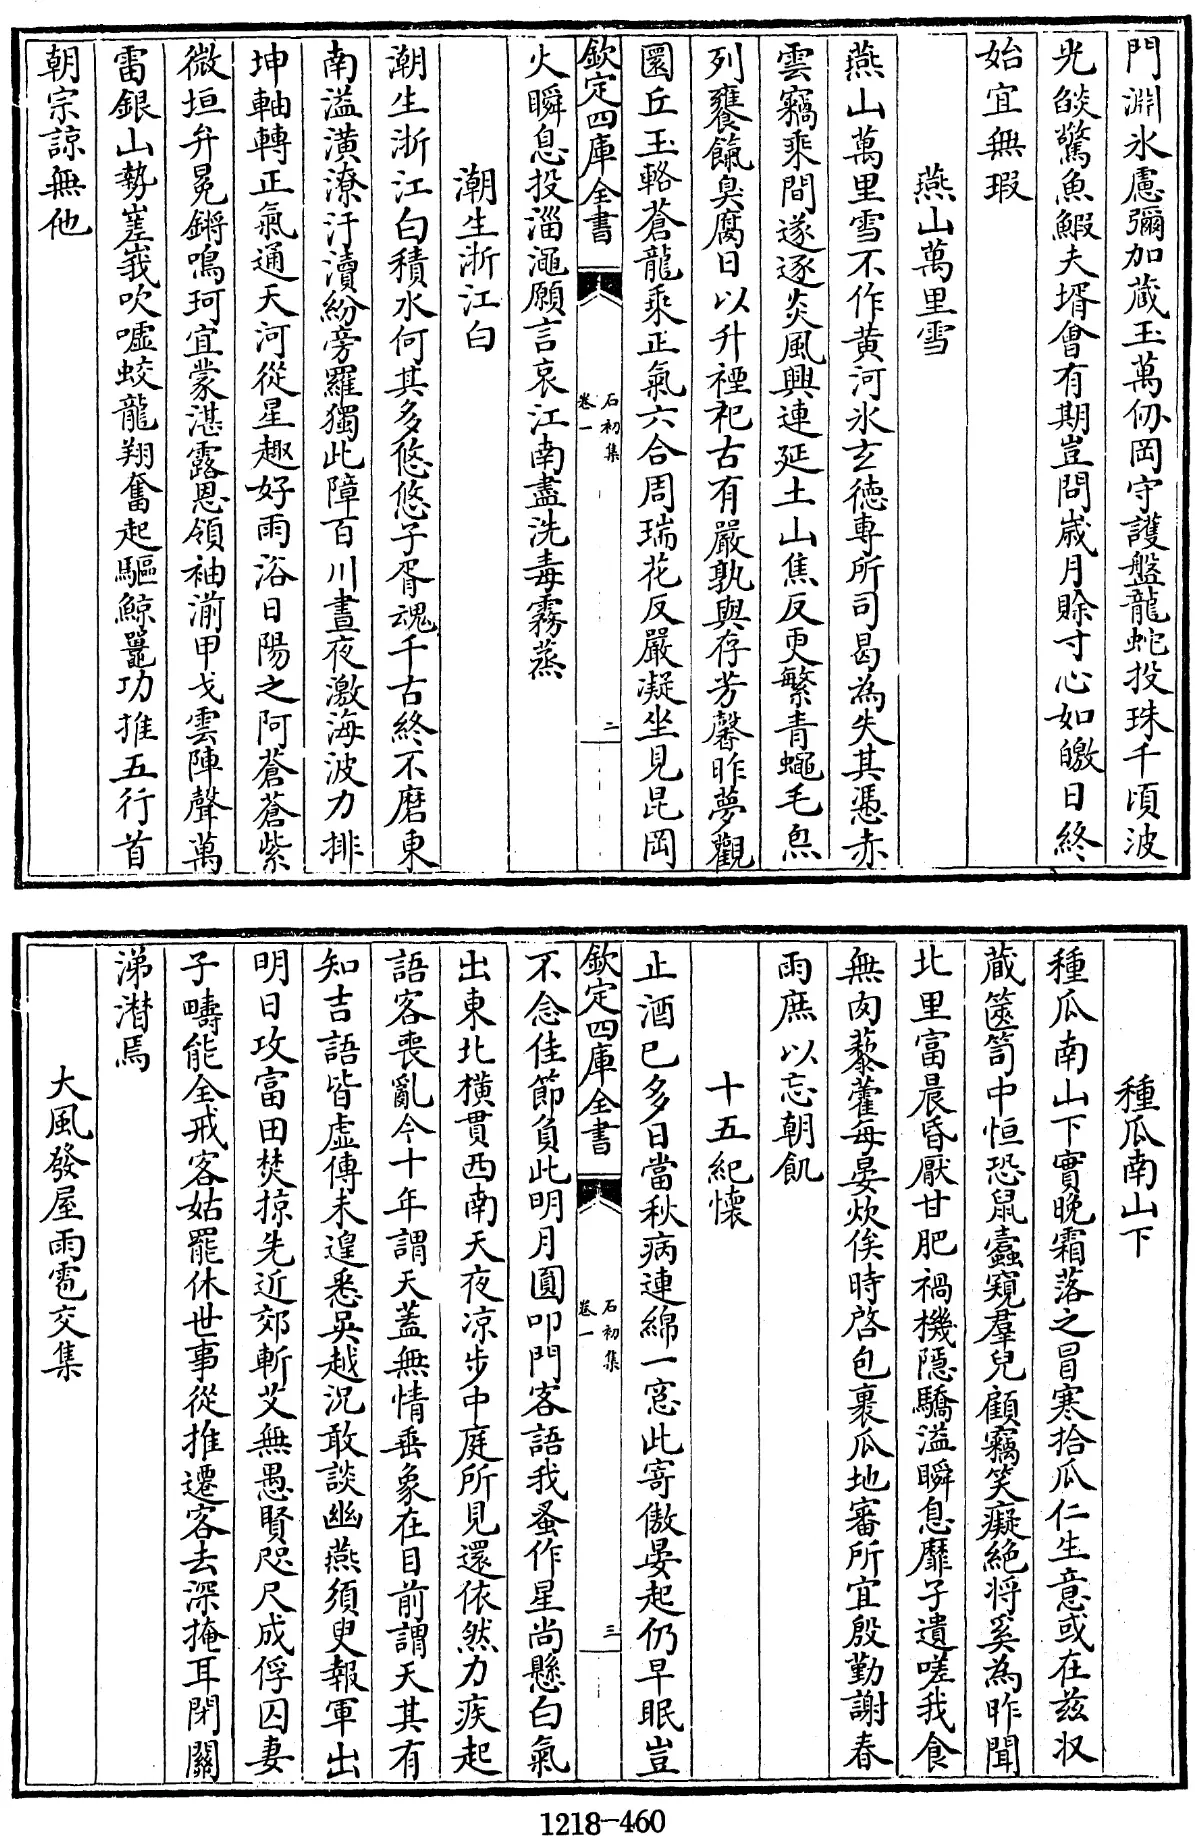 門淵氷慮彌加蔵玉萬仭岡守護盤龍蛇投珠千頃波
光燄驚魚鰕夫壻會有期豈問歳月賒寸心如皦日終
始宜無瑕
燕山萬里雪
燕山萬里雪不作黄河氷玄徳專所司曷為失其憑赤
雲竊乘間遂逐炎風興連延土山焦反更繁青蠅毛炰
列饔餼臭腐日以升禋祀古有嚴孰與存芳馨昨夢觀
圜丘玉輅蒼龍乘正氣六合周瑞花反嚴凝坐見昆岡
欽定四庫全書
石初集
卷一
二
火瞬息投淄澠願言哀江南盡洗毒霧蒸
潮生浙江白
潮生浙江白積水何其多悠悠子胥魂千古終不磨東
南溢潢潦汙瀆紛旁羅獨此障百川晝夜激海波力排
坤軸轉正氣通天河從星趣好雨浴日陽之阿蒼蒼紫
微垣弁冕鏘鳴珂宜蒙湛露恩領袖湔甲戈雲陣聲萬
雷銀山勢嵳峩吹嘘蛟龍翔奮起驅鯨鼉功推五行首
朝宗諒無他
種瓜南山下
種瓜南山下實晩霜落之冒寒拾瓜仁生意或在兹収
蔵篋笥中恒恐鼠蠹窺羣兒顧竊笑癡絶将奚為昨聞
北里富晨昏厭甘肥禍機隠驕溢瞬息靡孑遺嗟我食
無肉藜藿每晏炊俟時啓包裹瓜地審所宜殷勤謝春
雨庶以忘朝飢
十五紀懐
止酒已多日當秋病連綿一窓此寄傲晏起仍早眠豈
欽定四庫全書
石初集
卷一
三
不念佳節負此明月圓叩門客語我蚤作星尚懸白氣
出東北横貫西南天夜凉步中庭所見還依然力疾起
語客喪亂今十年謂天蓋無情垂象在目前謂天其有
知吉語皆虚傳未遑悉吳越况敢談幽燕須臾報軍出
明日攻富田焚掠先近郊斬艾無愚賢咫尺成俘囚妻
子疇能全戒客姑罷休世事從推遷客去深掩耳閉關
涕潸焉
大風發屋雨雹交集
1218-460